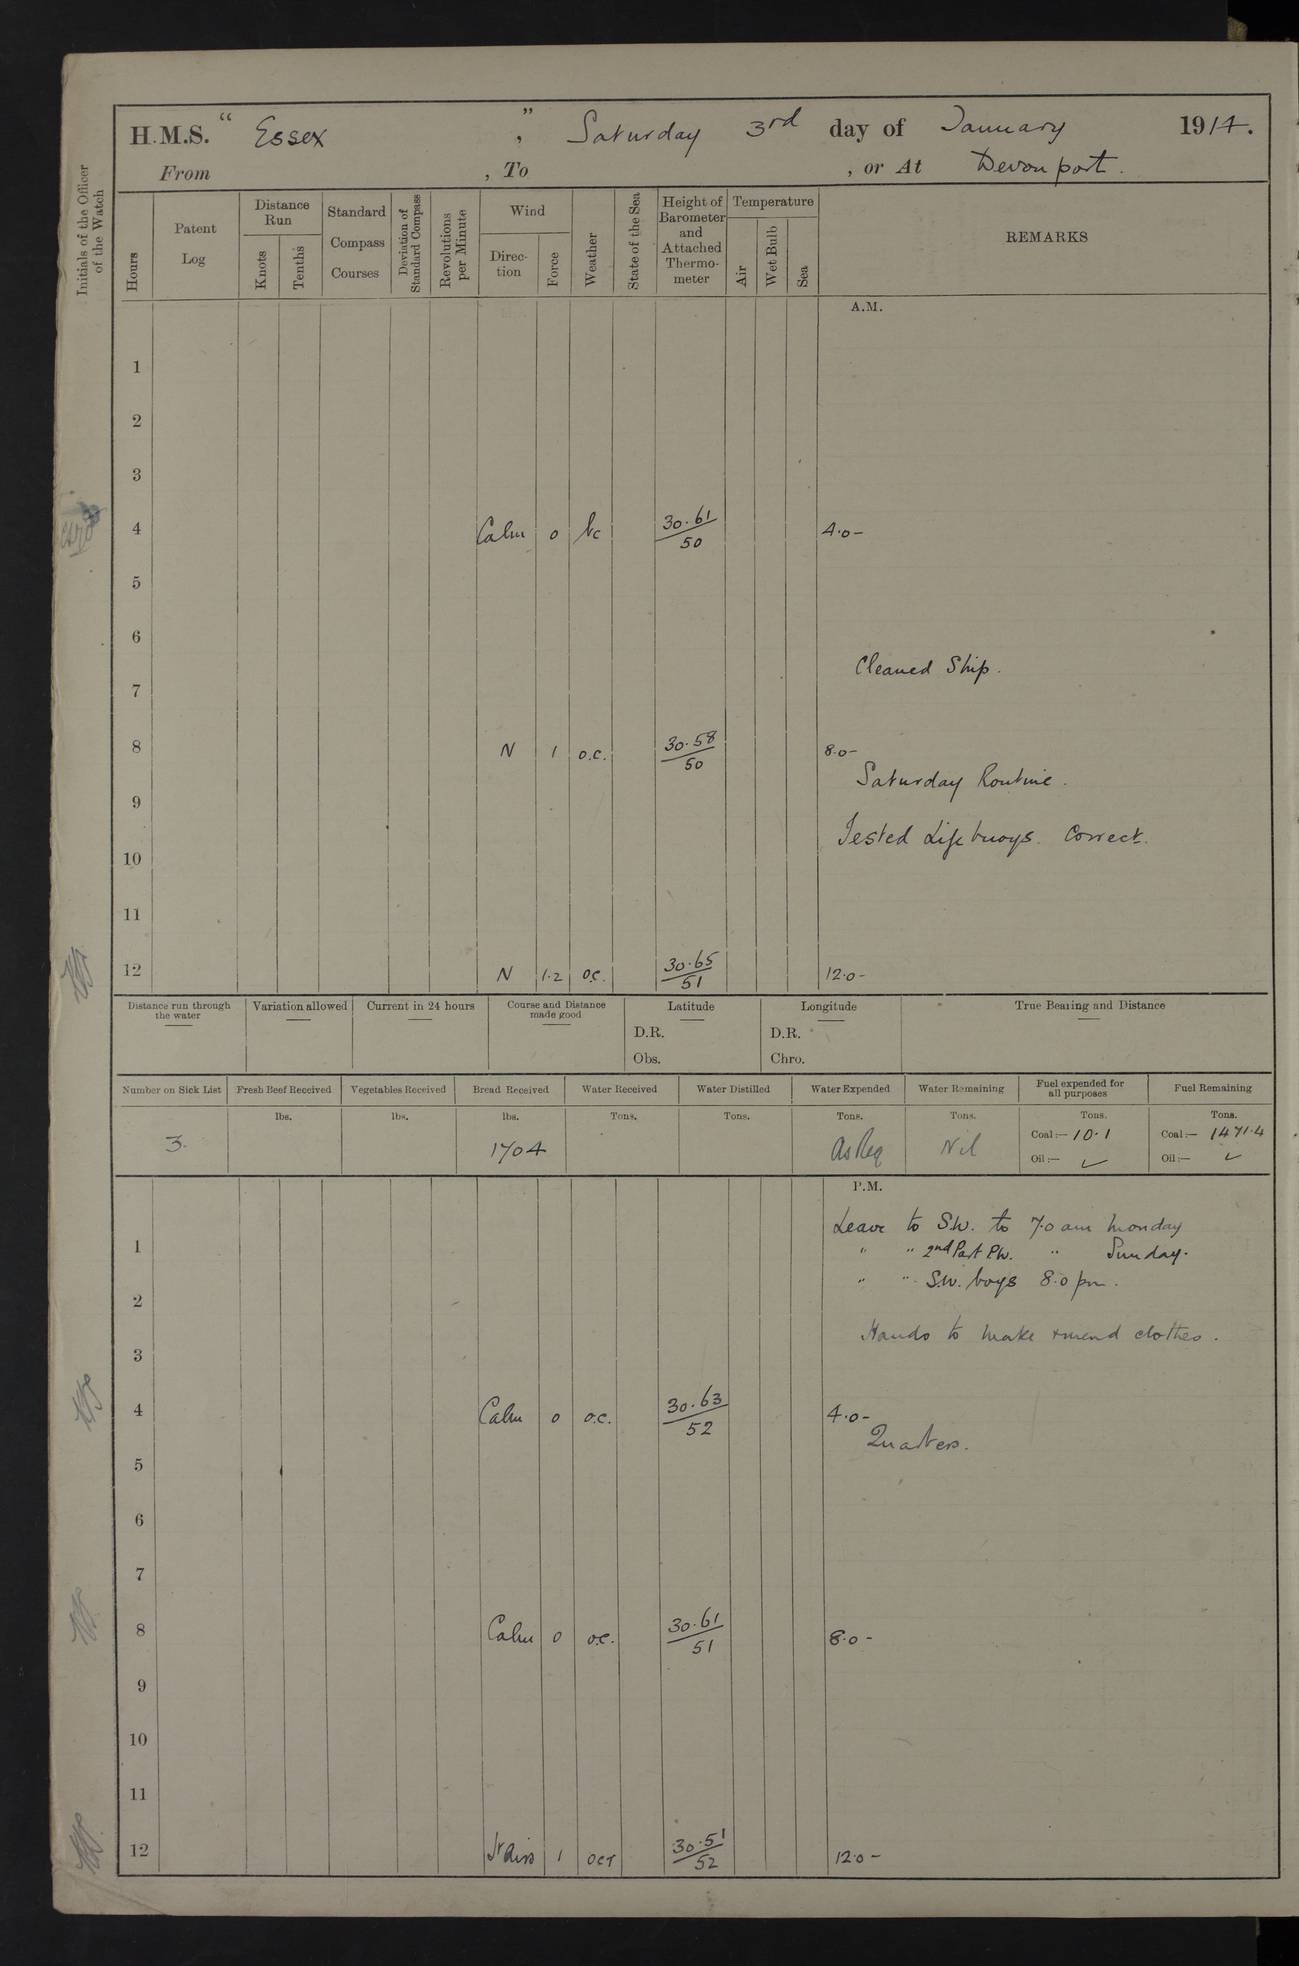 H.M.S. “ Essex ” , Saturday 3rd day of January 1914.
From , To , or At Devonport.
Initials of the Officer of the Watch
Hours
Patent Log
Distance Run
Knots
Tenths
Standard Compass Courses
Deviation of Standard Compass
Revolutions per Minute
Wind
Direction
Force
Weather
State of the Sea
Height of Barometer and Attached Thermometer
Temperature
Air
Wet Bulb
Sea
REMARKS
A.M.
1
2
3
4 Calm 0 bc 30.61/50 4.0-
5
6
Cleaned Ship.
7
8 N 1 o.c. 30.58/50 8.0-
Saturday Routine.
9
Tested Lifebuoys. Correct.
10
11
12 N 1.2 o.c. 30.65/51 12.0-
Distance run through the water
Variation allowed
Current in 24 hours
Course and Distance made good
Latitude
D.R.
Obs.
Longitude
D.R.
Chro.
True Bearing and Distance
Number on Sick List Fresh Beef Received Vegetables Received Bread Received Water Received Water Distilled Water Expended Water Remaining Fuel expended for all purposes Fuel Remaining
lbs. lbs. lbs. Tons. Tons. Tons. Tons. Tons. Tons.
3. 1704 As Req Nil Coal:— 10.1 Coal:— 1471.4
Oil:— ✓ Oil:— ✓
P.M.
Leave to S.W. to 7.0 am Monday
1 " " 2nd Part P.W. " Sunday.
" " S.W. boys 8.0 pm.
2
Hands to make & mend clothes.
3
4 Calm 0 o.c. 30.63/52 4.0-
Quarters.
5
6
7
8 Calm 0 o.c. 30.61/51 8.0-
9
10
11
12 1 30.51/52 12.0-